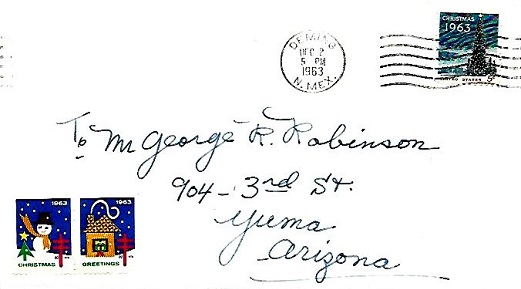 DEMING
DEC 2
5 PM
1963
N. MEX.
CHRISTMAS
1963
5¢
UNITED STATES
To Mr George R. Robinson
904-3rd St.
Yuma
Arizona
1963
CHRISTMAS
1963
GREETINGS